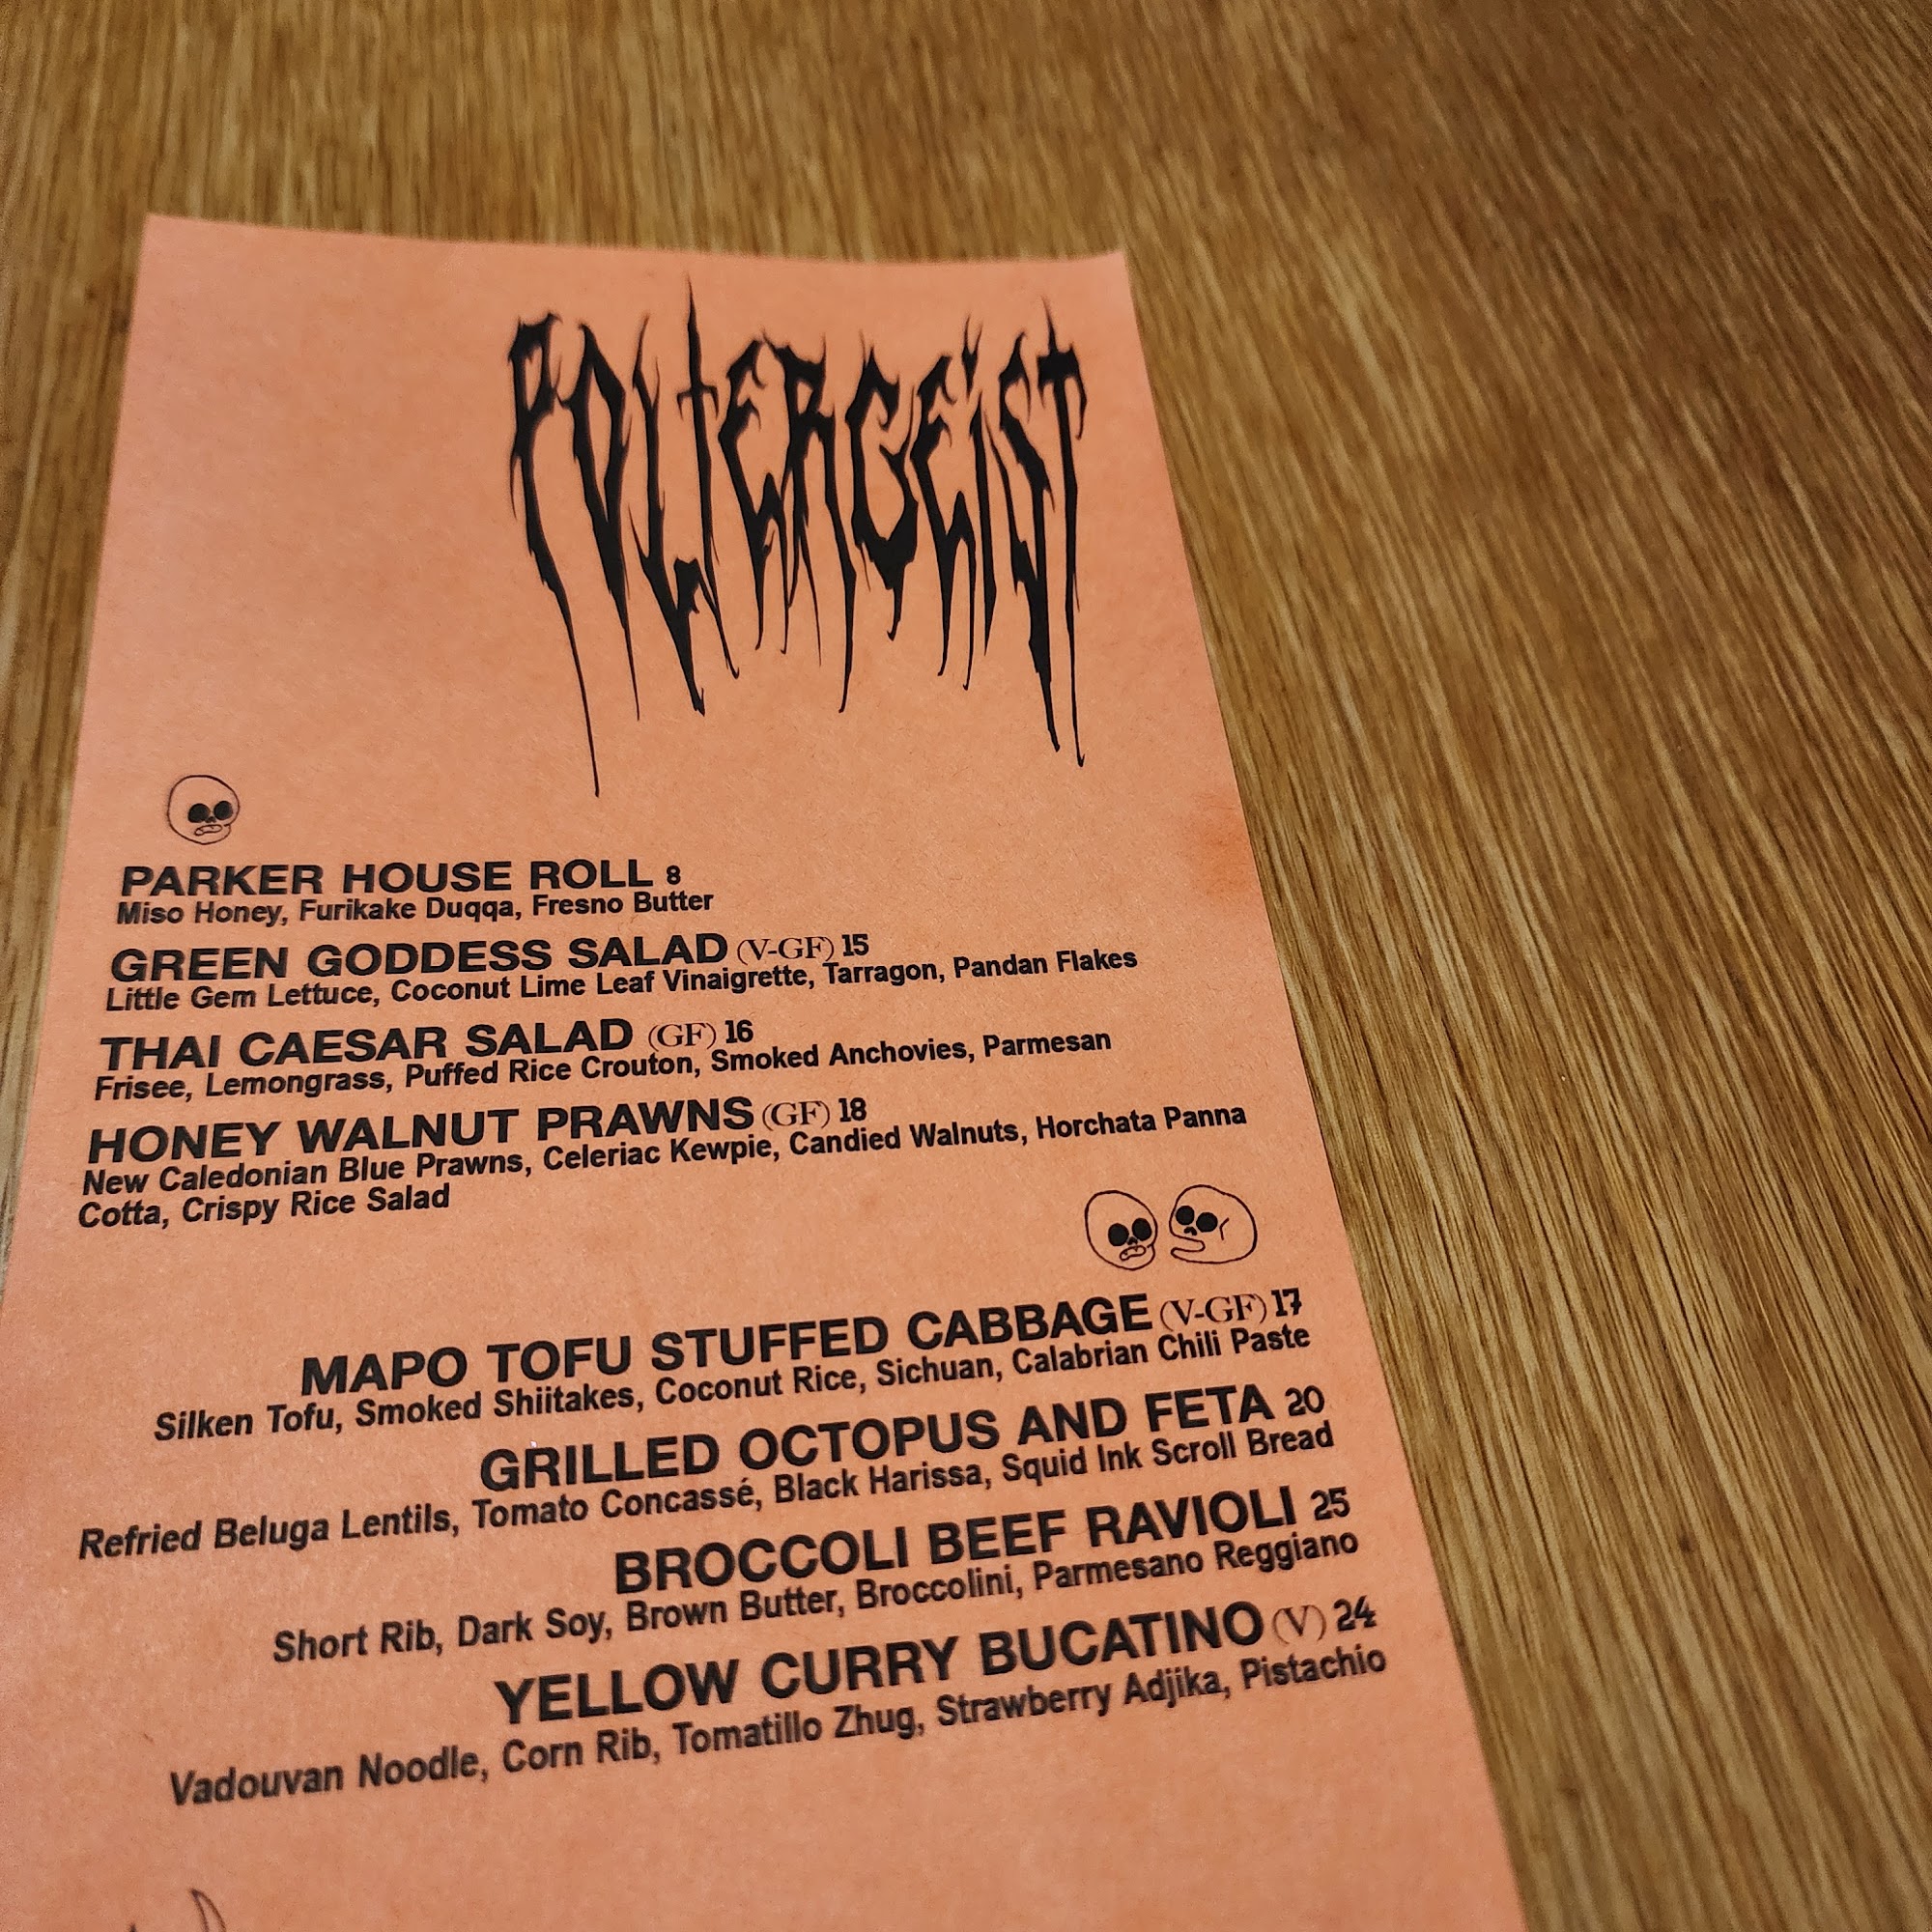 POLTERGEiST
PARKER HOUSE ROLL 8
Miso Honey, Furikake Duqqa, Fresno Butter
GREEN GODDESS SALAD (V-GF) 15
Little Gem Lettuce, Coconut Lime Leaf Vinaigrette, Tarragon, Pandan Flakes
THAI CAESAR SALAD (GF) 16
Frisee, Lemongrass, Puffed Rice Crouton, Smoked Anchovies, Parmesan
HONEY WALNUT PRAWNS (GF) 18
New Caledonian Blue Prawns, Celeriac Kewpie, Candied Walnuts, Horchata Panna
Cotta, Crispy Rice Salad
MAPO TOFU STUFFED CABBAGE (V-GF) 17
Silken Tofu, Smoked Shiitakes, Coconut Rice, Sichuan, Calabrian Chili Paste
GRILLED OCTOPUS AND FETA 20
Refried Beluga Lentils, Tomato Concassé, Black Harissa, Squid Ink Scroll Bread
BROCCOLI BEEF RAVIOLI 25
Short Rib, Dark Soy, Brown Butter, Broccolini, Parmesano Reggiano
YELLOW CURRY BUCATINO (V) 24
Vadouvan Noodle, Corn Rib, Tomatillo Zhug, Strawberry Adjika, Pistachio